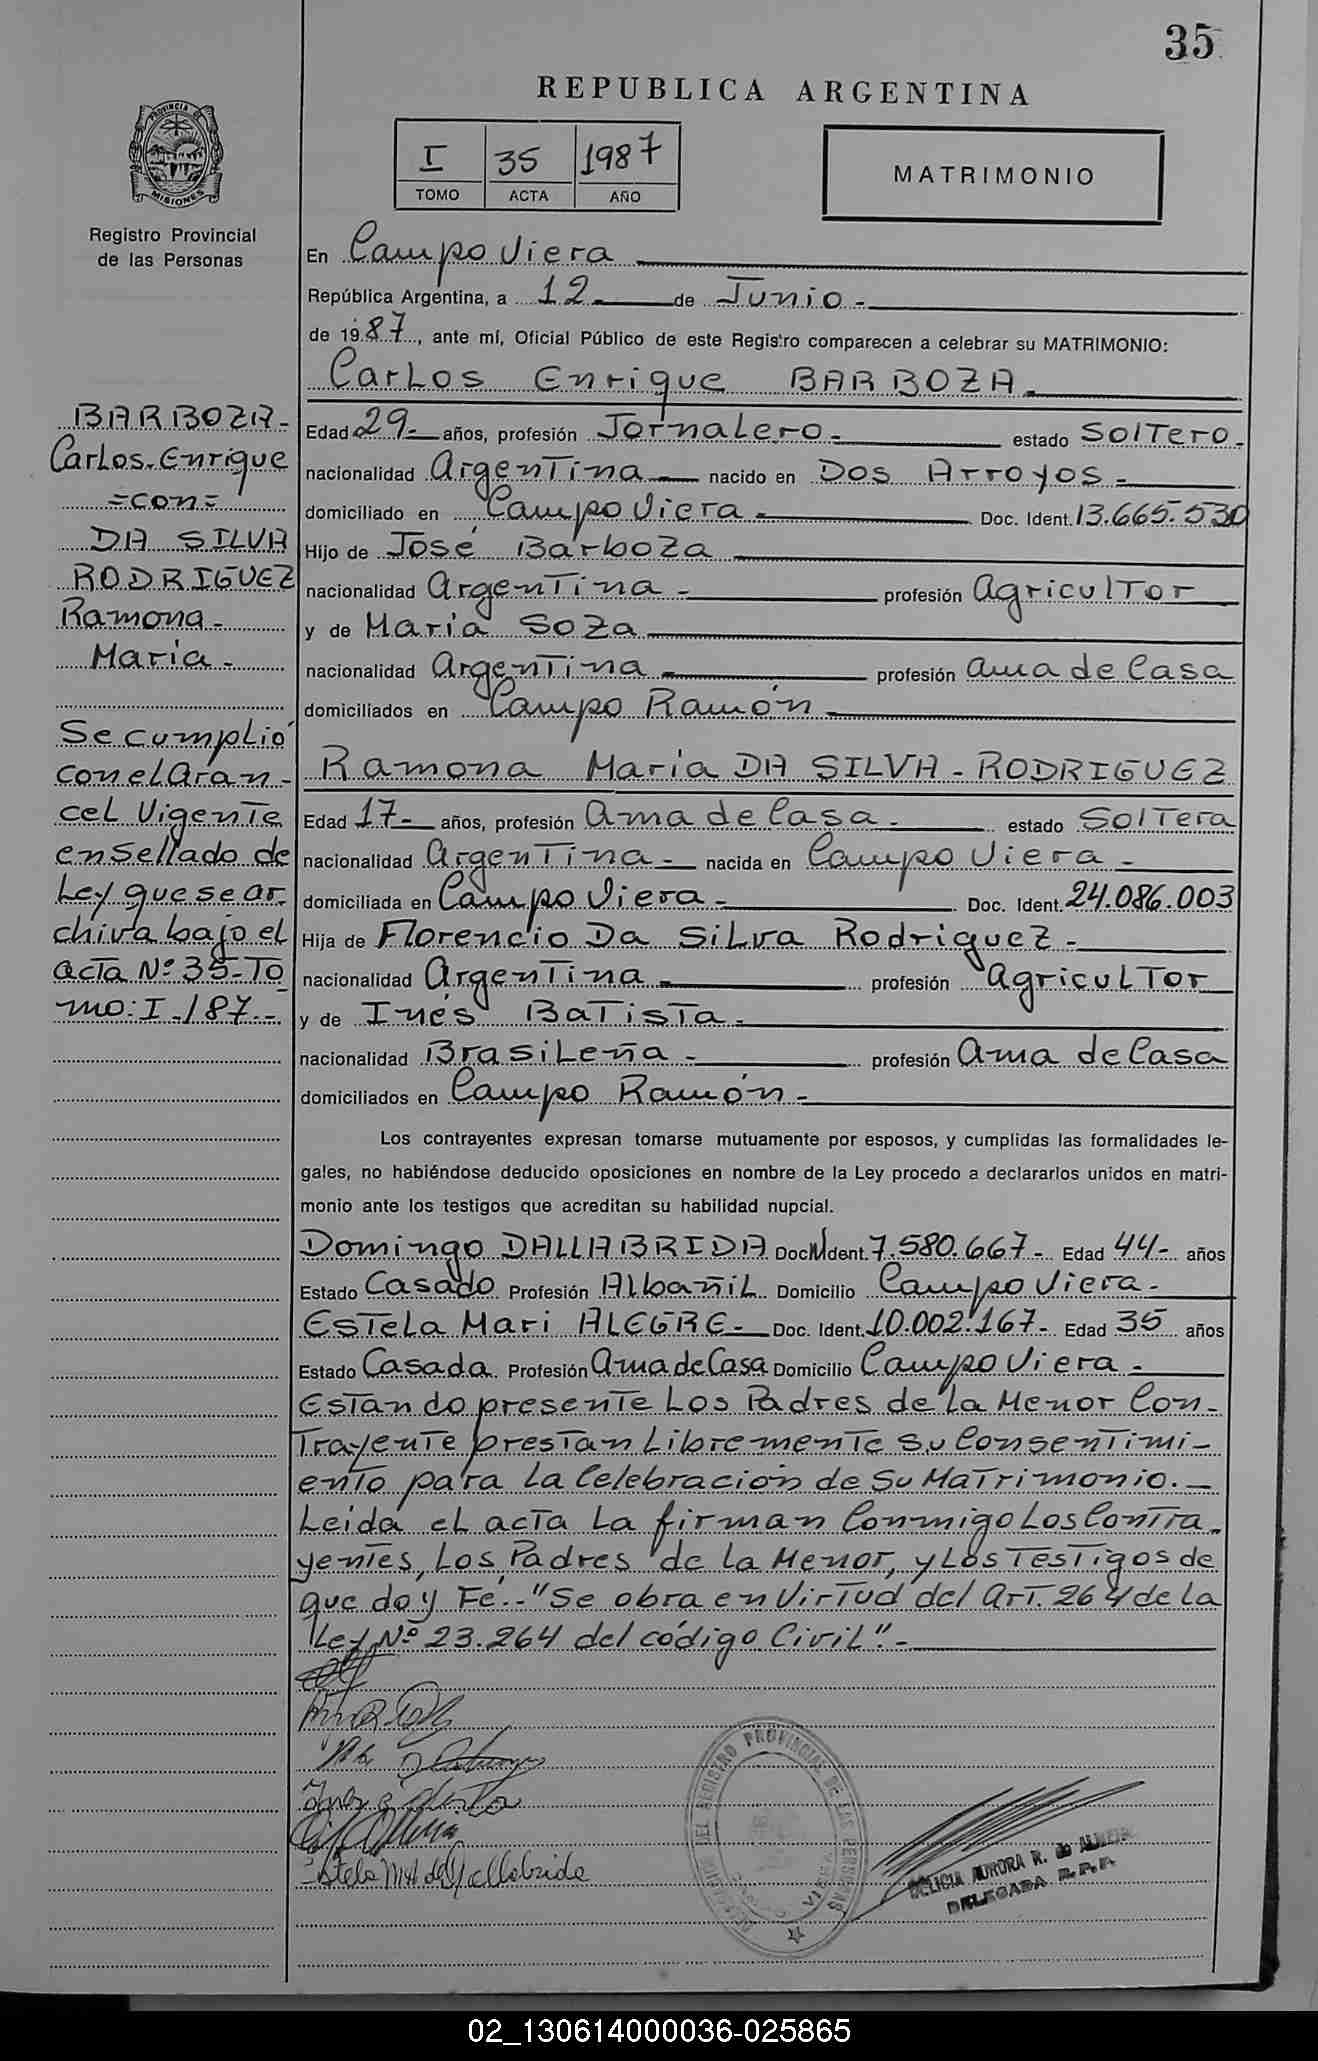 35
REPUBLICA ARGENTINA
PROVINCIA DE
MISIONES
I 35 1987
TOMO ACTA AÑO
MATRIMONIO
Registro Provincial
de las Personas
BARBOZA-
Carlos-Enrique
=con=
DA SILVA
RODRIGUEZ
Ramona-
María-
Se cumplió
con el Aran-
cel Vigente
en Sellado de
Ley que se ar
chiva bajo el
acta Nº 35-To
mo: I-/87.-
En Campo Viera
República Argentina, a 12 de Junio-
de 1987, ante mí, Oficial Público de este Registro comparecen a celebrar su MATRIMONIO:
Carlos Enrique BARBOZA-
Edad 29- años, profesión Jornalero- estado Soltero-
nacionalidad Argentina- nacido en Dos Arroyos-
domiciliado en Campo Viera- Doc. Ident. 13.665.530
Hijo de José Barboza
nacionalidad Argentina- profesión Agricultor
y de María Soza
nacionalidad Argentina- profesión ama de Casa
domiciliados en Campo Ramón-
Ramona María DA SILVA-RODRIGUEZ
Edad 17- años, profesión Ama de Casa- estado Soltera
nacionalidad Argentina- nacida en Campo Viera-
domiciliada en Campo Viera- Doc. Ident. 24.086.003
Hija de Florencio Da Silva Rodriguez-
nacionalidad Argentina- profesión agricultor
y de Inés Batista-
nacionalidad Brasileña- profesión Ama de Casa
domiciliados en Campo Ramón-
Los contrayentes expresan tomarse mutuamente por esposos, y cumplidas las formalidades le-
gales, no habiéndose deducido oposiciones en nombre de la Ley procedo a declararlos unidos en matri-
monio ante los testigos que acreditan su habilidad nupcial.
Domingo DALLABRIDA Doc. Ident. 7.580.667- Edad 44- años
Estado Casado Profesión Albañil Domicilio Campo Viera-
Estela Mari ALEGRE- Doc. Ident. 10.002.167- Edad 35 años
Estado Casada Profesión Ama de Casa Domicilio Campo Viera-
Estando presente Los Padres de La Menor Con-
Trayente prestan Libremente su Consentimi-
ento para La Celebración de su Matrimonio.-
Leida el acta La firman Conmigo Los Contra-
yentes, Los Padres de la Menor, y Los Testigos de
que doy Fé.-"Se obra en Virtud del Art. 264 de la
Ley Nº 23.264 del código Civil".-
Estela M A de Dallabrida
DEL REGISTRO PROVINCIAL DE LAS PERSONAS
DELICIA AURORA R. de
DELEGADA R.P.P.
02_130614000036-025865